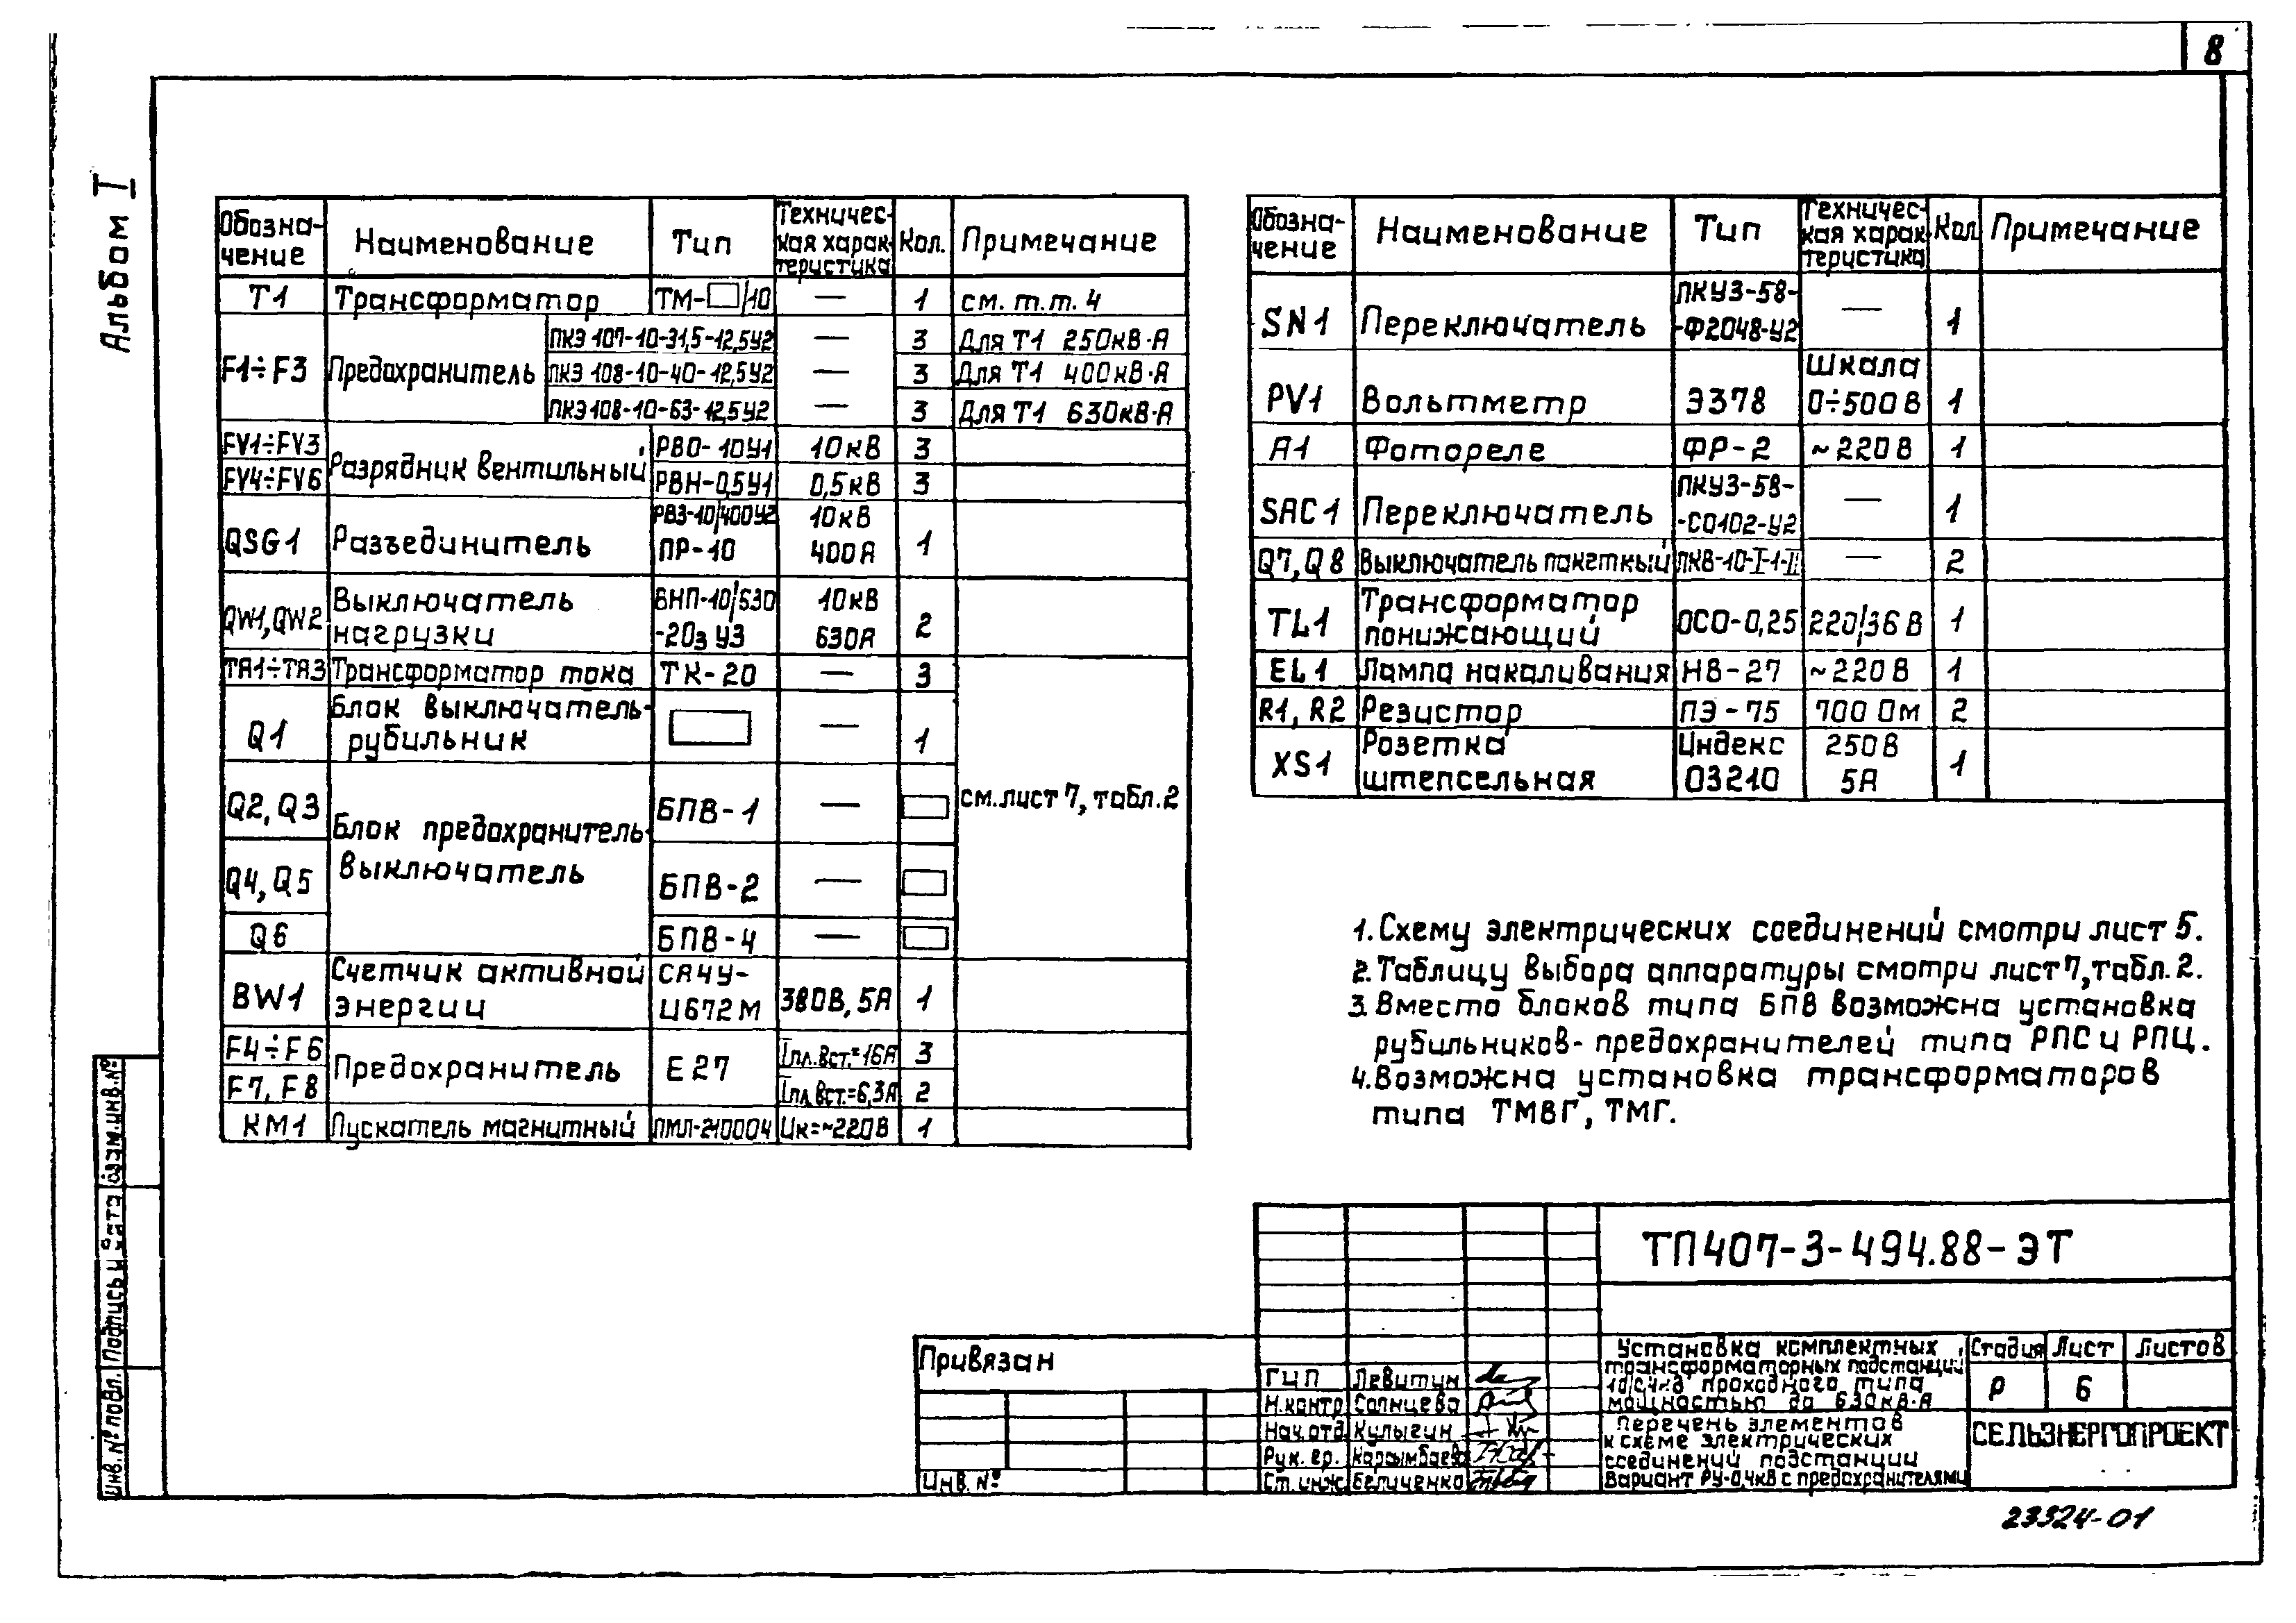 8
Альбом I
Обозна-чение Наименование Тип Техничес-кая харак-теристика Кол. Примечание
Т1 Трансформатор ТМ-□/10 — 1 см. т.т. 4
F1÷F3 Предохранитель ПКЭ 107-10-31,5-12,5У2 — 3 Для Т1 250кВ·А
ПКЭ 108-10-40-12,5У2 — 3 Для Т1 400кВ·А
ПКЭ 108-10-63-12,5У2 — 3 Для Т1 630кВ·А
FV1÷FV3 Разрядник вентильный РВО-10У1 10кВ 3
FV4÷FV6 РВН-0,5У1 0,5кВ 3
QSG1 Разъединитель РВЗ-10/400У2 10кВ 1
ПР-10 400А
QW1, QW2 Выключатель ВНП-10/630 10кВ 2
нагрузки -20з У3 630А
ТА1÷ТА3 Трансформатор тока ТК-20 — 3
Q1 Блок выключатель- □ — 1
рубильник
Q2, Q3 Блок предохранитель- БПВ-1 — □ см. лист 7, табл.2
Q4, Q5 выключатель БПВ-2 — □
Q6 БПВ-4 — □
BW1 Счетчик активной СА4У- 380В, 5А 1
энергии И672М
F4÷F6 Предохранитель Е27 Iпл.вст.=16А 3
F7, F8 Iпл.вст.=6,3А 2
КМ1 Пускатель магнитный ПМЛ-210004 Uк=~220В 1
Обозна-чение Наименование Тип Техничес-кая харак-теристика Кол Примечание
SN1 Переключатель ПКУ3-58- — 1
-Ф2048-У2
PV1 Вольтметр Э378 Шкала 1
0÷500В
А1 Фотореле ФР-2 ~220В 1
SAC1 Переключатель ПКУ3-58- — 1
-С0102-У2
Q7, Q8 Выключатель пакетный ПКВ-10-I-1-II — 2
TL1 Трансформатор ОСО-0,25 220/36В 1
понижающий
EL1 Лампа накаливания НВ-27 ~220В 1
R1, R2 Резистор ПЭ-75 700 Ом 2
XS1 Розетка Индекс 250В 1
штепсельная 03210 5А
1. Схему электрических соединений смотри лист 5.
2. Таблицу выбора аппаратуры смотри лист 7, табл. 2.
3. Вместо блоков типа БПВ возможна установка
рубильников-предохранителей типа РПС и РПЦ.
4. Возможна установка трансформаторов
типа ТМВГ, ТМГ.
ТП407-3-494.88-ЭТ
Привязан
Инв. №
ГИП Левитин
Н.контр Солнцева
Нач.отд Кулыгин
Рук. гр.
Ст. инж Беличенко
Установка комплектных
трансформаторных подстанций
10/0,4кВ проходного типа
мощностью до 630кВ·А
Стадия Лист Листов
Р 6
Перечень элементов
к схеме электрических
соединений подстанции
Вариант РУ-0,4кВ с предохранителями
СЕЛЬЭНЕРГОПРОЕКТ
Инв. № подл. Подпись и дата Взам. инв. №
23324-01